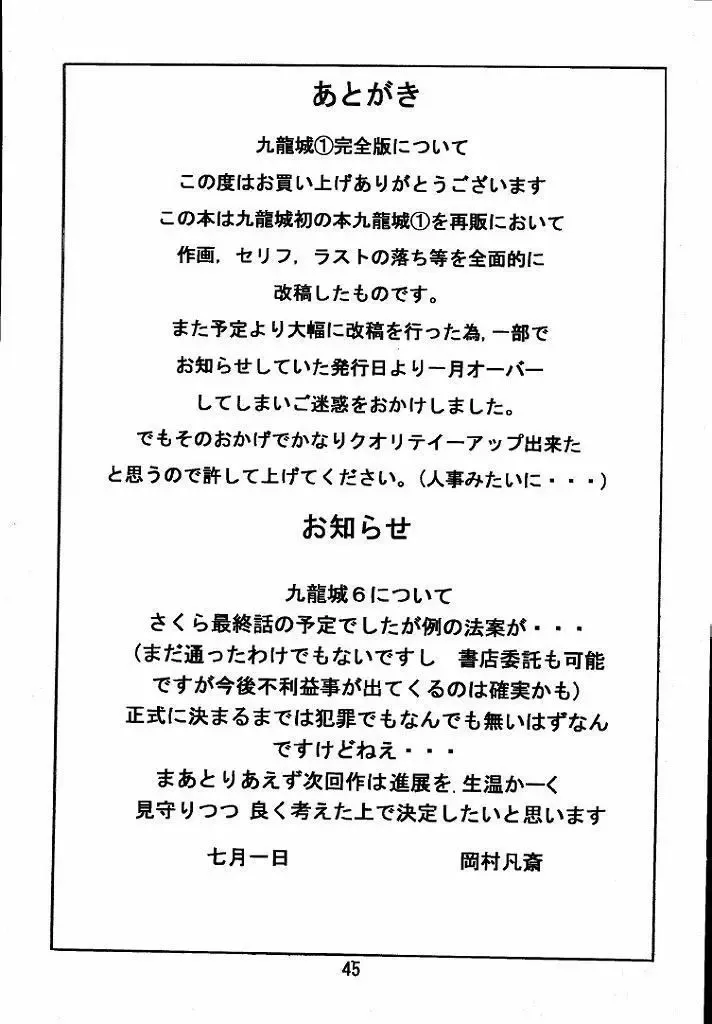 あとがき
九龍城①完全版について
この度はお買い上げありがとうございます
この本は九龍城初の本九龍城①を再販において
作画，セリフ，ラストの落ち等を全面的に
改稿したものです。
また予定より大幅に改稿を行った為,一部で
お知らせしていた発行日より一月オーバー
してしまいご迷惑をおかけしました。
でもそのおかげでかなりクオリテイーアップ出来た
と思うので許して上げてください。（人事みたいに・・・）
お知らせ
九龍城６について
さくら最終話の予定でしたが例の法案が・・・
（まだ通ったわけでもないですし　書店委託も可能
ですが今後不利益事が出てくるのは確実かも）
正式に決まるまでは犯罪でもなんでも無いはずなん
ですけどねえ・・・
まあとりあえず次回作は進展を.生温かーく
見守りつつ 良く考えた上で決定したいと思います
七月一日　岡村凡斎
45